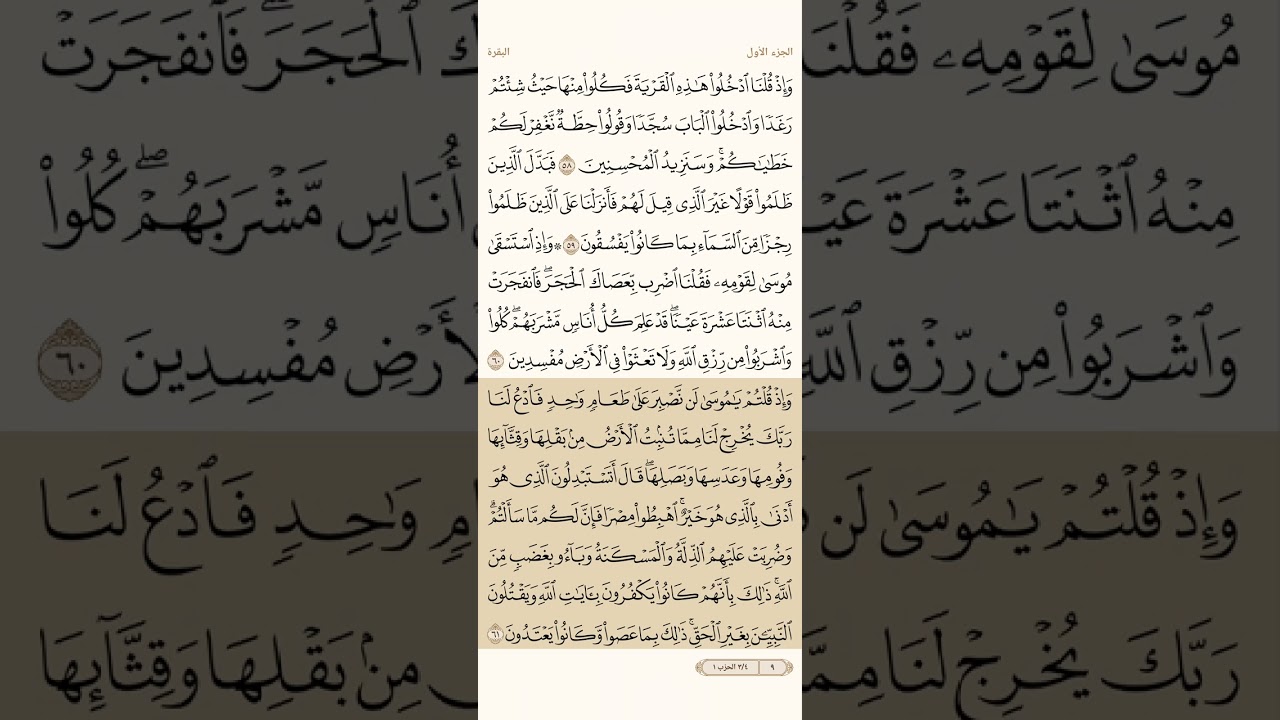 الجزء الأول
البقرة
وَإِذْ قُلْنَا ٱدْخُلُوا۟ هَـٰذِهِ ٱلْقَرْيَةَ فَكُلُوا۟ مِنْهَا حَيْثُ شِئْتُمْ
رَغَدًا وَٱدْخُلُوا۟ ٱلْبَابَ سُجَّدًا وَقُولُوا۟ حِطَّةٌ نَّغْفِرْ لَكُمْ
خَطَـٰيَـٰكُمْ ۚ وَسَنَزِيدُ ٱلْمُحْسِنِينَ ٥٨ فَبَدَّلَ ٱلَّذِينَ
ظَلَمُوا۟ قَوْلًا غَيْرَ ٱلَّذِى قِيلَ لَهُمْ فَأَنزَلْنَا عَلَى ٱلَّذِينَ ظَلَمُوا۟
رِجْزًا مِّنَ ٱلسَّمَآءِ بِمَا كَانُوا۟ يَفْسُقُونَ ٥٩ ۞ وَإِذِ ٱسْتَسْقَىٰ
مُوسَىٰ لِقَوْمِهِۦ فَقُلْنَا ٱضْرِب بِّعَصَاكَ ٱلْحَجَرَ ۖ فَٱنفَجَرَتْ
مِنْهُ ٱثْنَتَا عَشْرَةَ عَيْنًا ۖ قَدْ عَلِمَ كُلُّ أُنَاسٍ مَّشْرَبَهُمْ ۖ كُلُوا۟
وَٱشْرَبُوا۟ مِن رِّزْقِ ٱللَّهِ وَلَا تَعْثَوْا۟ فِى ٱلْأَرْضِ مُفْسِدِينَ ٦٠
وَإِذْ قُلْتُمْ يَـٰمُوسَىٰ لَن نَّصْبِرَ عَلَىٰ طَعَامٍ وَٰحِدٍ فَٱدْعُ لَنَا
رَبَّكَ يُخْرِجْ لَنَا مِمَّا تُنۢبِتُ ٱلْأَرْضُ مِنۢ بَقْلِهَا وَقِثَّآئِهَا
وَفُومِهَا وَعَدَسِهَا وَبَصَلِهَا ۖ قَالَ أَتَسْتَبْدِلُونَ ٱلَّذِى هُوَ
أَدْنَىٰ بِٱلَّذِى هُوَ خَيْرٌ ۚ ٱهْبِطُوا۟ مِصْرًا فَإِنَّ لَكُم مَّا سَأَلْتُمْ ۗ
وَضُرِبَتْ عَلَيْهِمُ ٱلذِّلَّةُ وَٱلْمَسْكَنَةُ وَبَآءُو بِغَضَبٍ مِّنَ
ٱللَّهِ ۗ ذَٰلِكَ بِأَنَّهُمْ كَانُوا۟ يَكْفُرُونَ بِـَٔايَـٰتِ ٱللَّهِ وَيَقْتُلُونَ
ٱلنَّبِيِّـۧنَ بِغَيْرِ ٱلْحَقِّ ۗ ذَٰلِكَ بِمَا عَصَوا۟ وَّكَانُوا۟ يَعْتَدُونَ ٦١
٩
٣/٤ الحزب ١